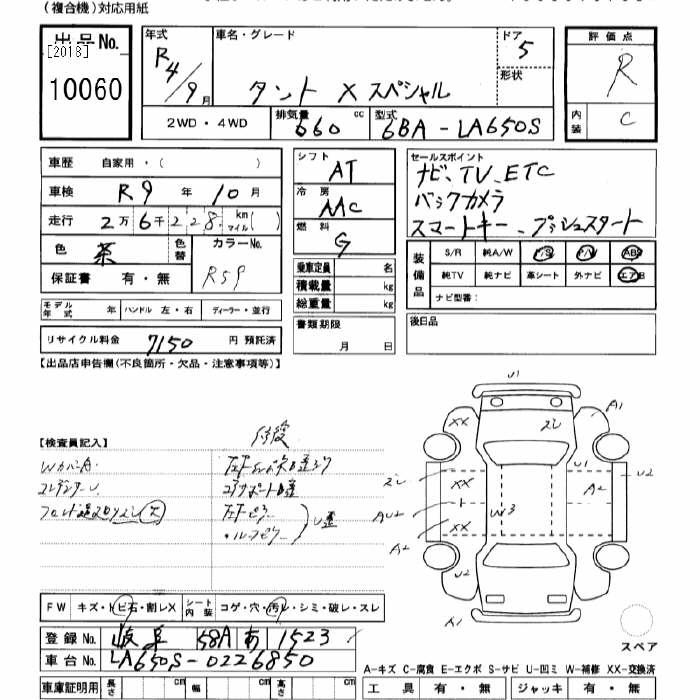 (複合機)対応用紙
出品No.
[2018]
10060
年式
R4/9月
車名・グレード
タント X スペシャル
ドア
5
形状
評価点
R
内装
C
2WD・4WD
排気量
660 cc
型式
6BA-LA650S
車歴 自家用・( )
車検 R9年 10月
走行 2万6千228 km マイル( )
色 茶 色替 カラーNo.
R59
保証書 有・無
モデル年式 年 ハンドル 左・右 ディーラー・並行
リサイクル料金 7150 円 預託済
シフト
AT
冷房
AAC
燃料
G
乗車定員 名
積載量 kg
総重量 kg
書類期限
月 日
セールスポイント
ナビ、TV、ETC
バックカメラ
スマートキー、プッシュスタート
装備品
S/R 純A/W P/S P/W ABS
純TV 純ナビ 革シート 外ナビ エアB
ナビ型番:
後日品
【出品店申告欄(不良箇所・欠品・注意事項等)】
【検査員記入】
修復
WカバーA
U1
A1
XX
2U
XX
U1
U2
A2
AU2
W3
XX
A2
U2
A1
スペア
FW キズ・トビ石・割レX シート内装 コゲ・穴・汚レ・シミ・破レ・スレ
登録No. 岐阜 58A あ 1523
車台No. LA650S-0226850
車庫証明用 長さ cm 幅 cm 高さ cm
A-キズ C-腐食 E-エクボ S-サビ U-凹ミ W-補修 XX-交換済
工具 有・無 ジャッキ 有・無